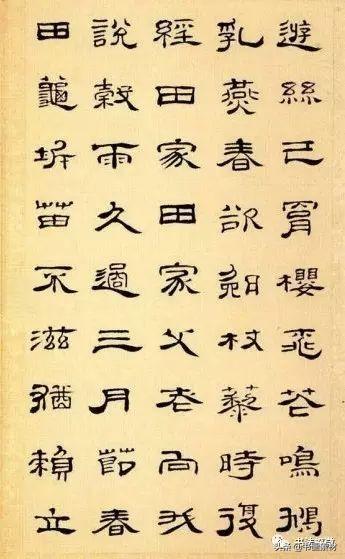 遊絲已罥櫻飛花鳴鳩
乳燕春欲杖藜時復
經田家田家父老向我
說穀雨久過三月節春
田龜坼苗不滋猶賴立